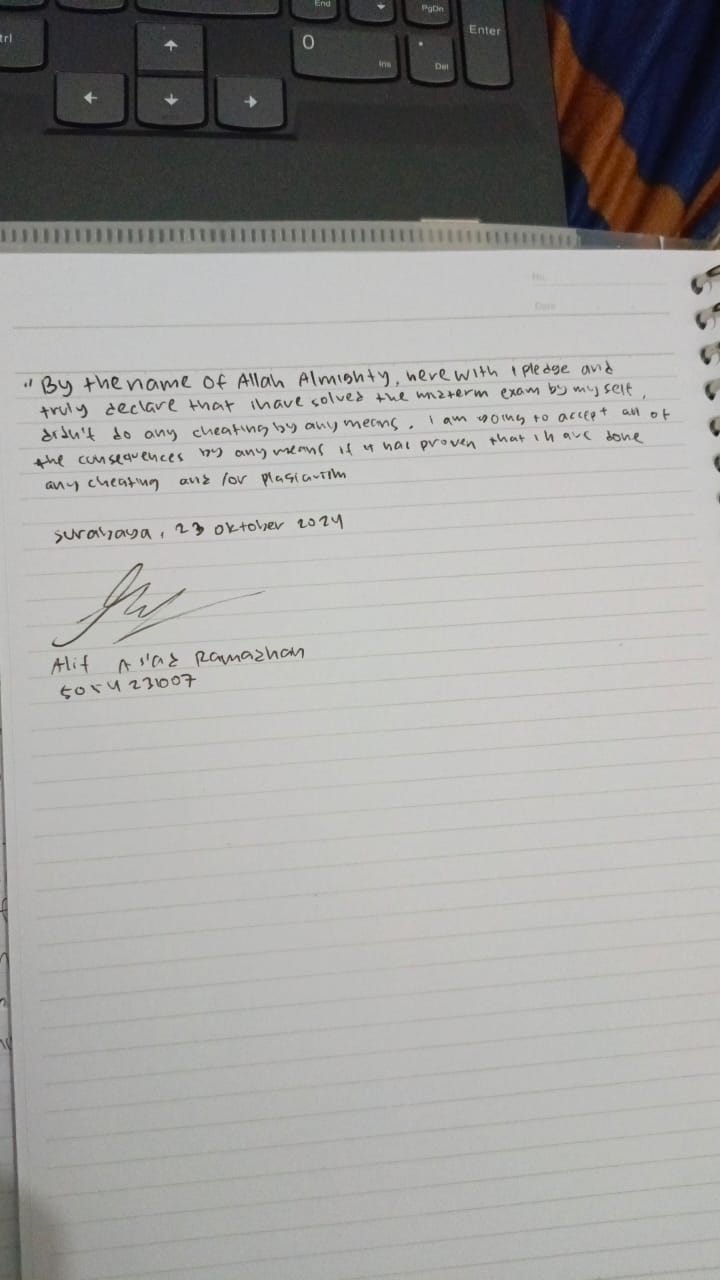 End
PgDn
Enter
trl
0
Ins
Del
No.
Date
" By the name of Allah Almighty, here with I pledge and
truly declare that ihave solved the midterm exam by my self,
didn't do any cheating by any means. I am going to accept all of
the consequences by any means if it has proven that ihave done
any cheating and /or plagiarism
Surabaya, 23 oktober 2024
Alif As'ad Ramadhan
5054231007